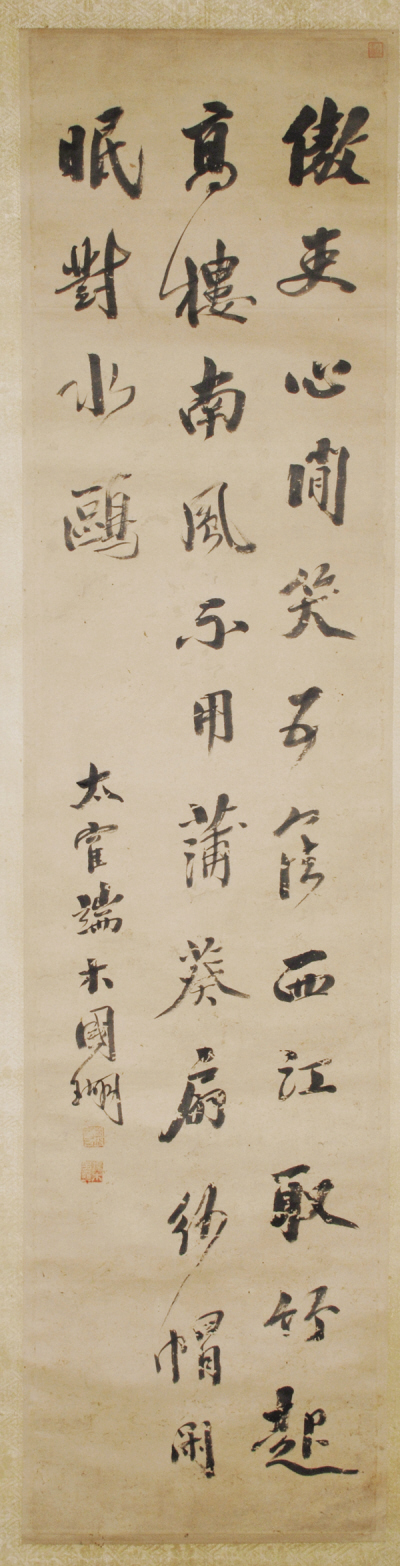 傲吏心閒笑五侯西江取竹起
高樓南風不用蒲葵扇紗帽閑
眠對水鷗
太隺端木國瑚